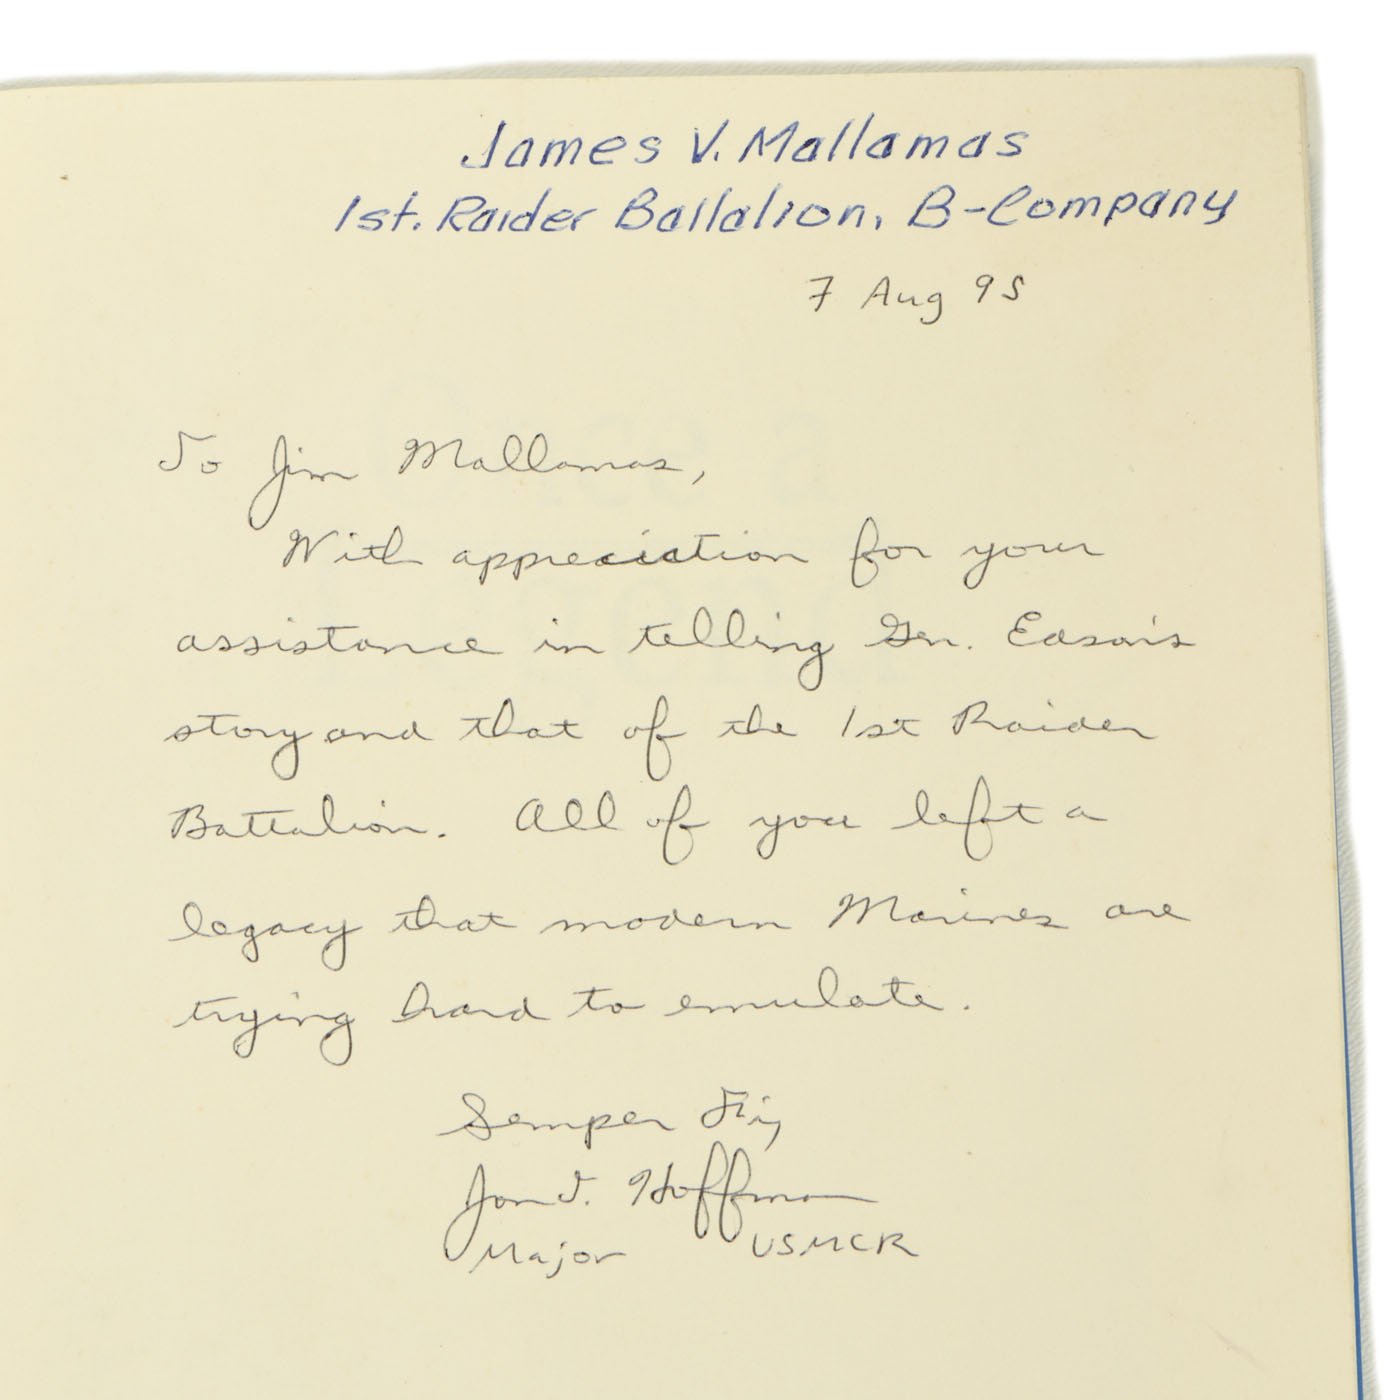 James V. Mallamas
1st. Raider Battalion, B-Company
7 Aug 95
To Jim Mallamas,
With appreciation for your
assistance in telling Gen. Edson's
story and that of the 1st Raider
Battalion. All of you left a
legacy that modern Marines are
trying hard to emulate.
Semper Fi,
Jon T. Hoffman
Major USMCR